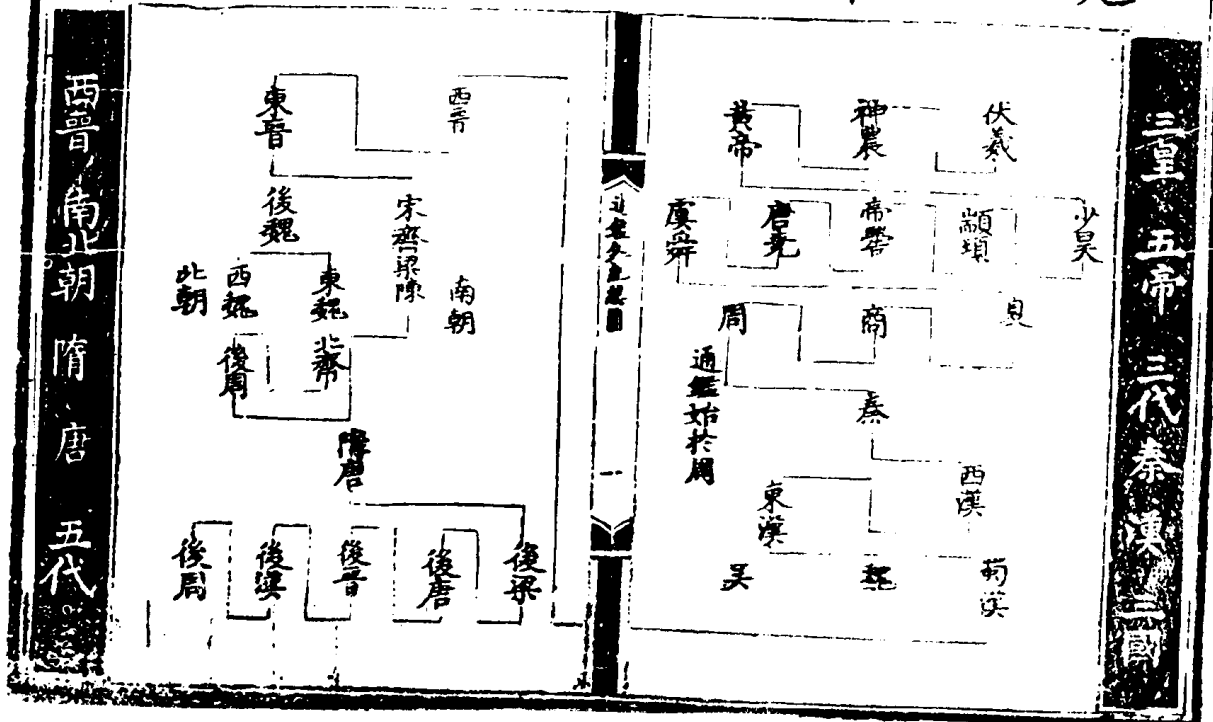 三皇 五帝 三代 秦 漢 三國
伏羲
神農
黃帝
少昊
顓頊
帝嚳
唐堯
虞舜
商
周
通鑑始於周
秦
西漢
東漢
蜀漢
魏
吴
西晉
東晉
宋齊梁陳
南朝
後魏
東魏
西魏
北朝
北齊
後周
隋唐
後梁
後唐
後晉
後漢
後周
西晉 南北朝 隋 唐 五代